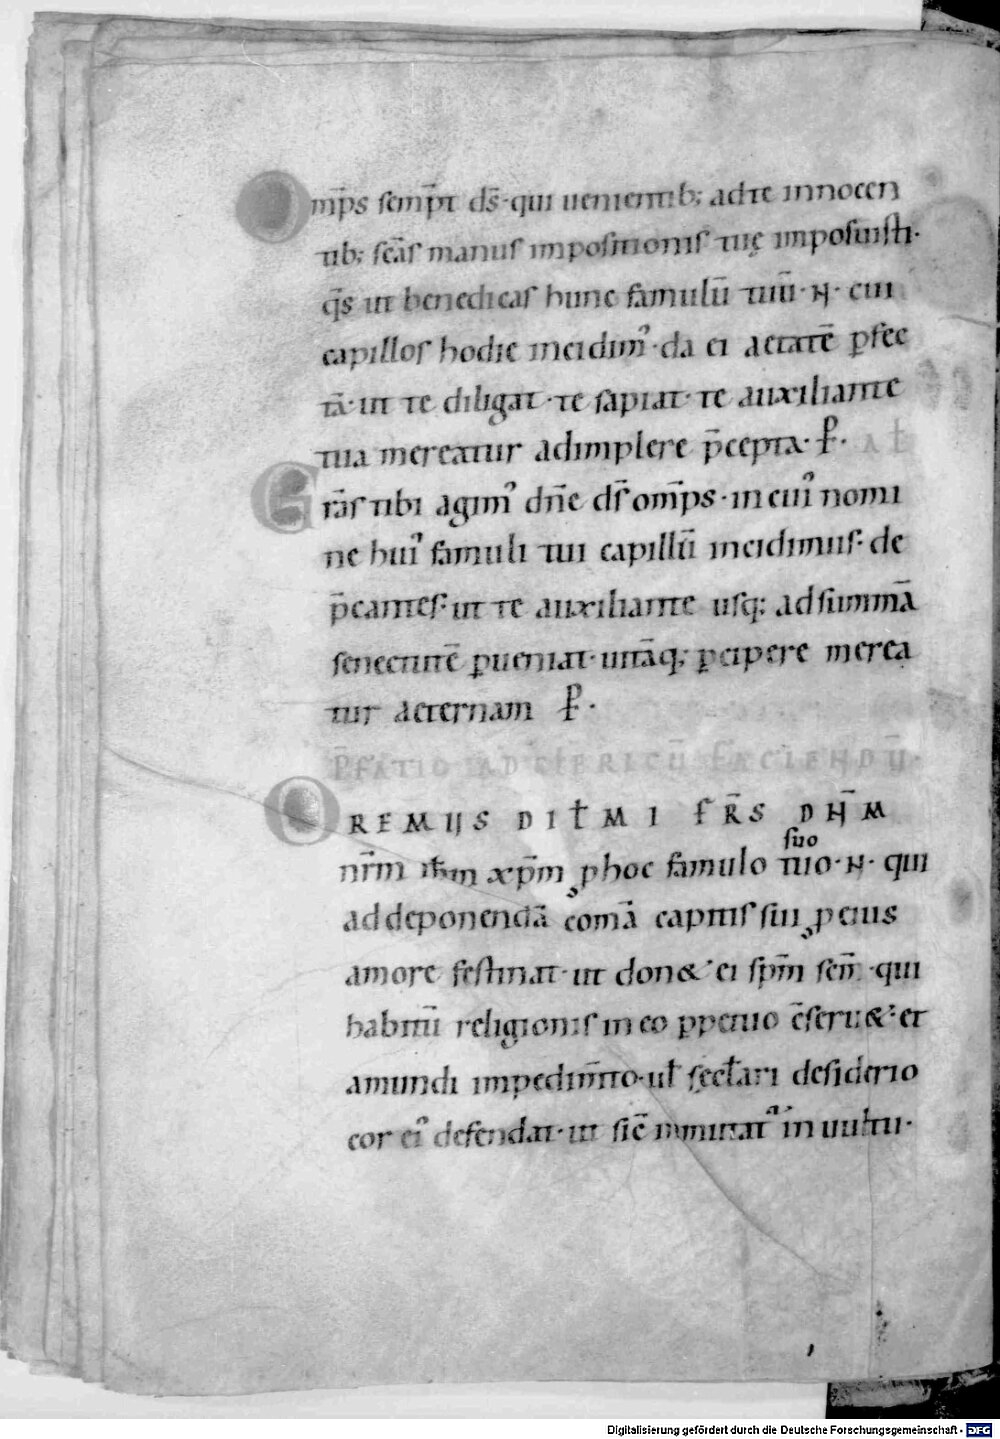 Om̅ps semp̅t ds̅· qui uenientib; ad te innocen
tib; sc̅as manus impositionis tuę imposuisti·
q̅s ut benedicas hunc famulu̅ tuu̅· N· cui
capillos hodie incidim᾽· da ei aetate̅ p̱fec
ta̅· ut te diligat· te sapiat· te auxiliante
tua mereatur adimplere p̅cepta· P̱·
Gr̅as tibi agim᾽ dn̅e ds̅ om̅ps· in cui᾽ nomi
ne hui᾽ famuli tui capillu̅ incidimus· de
p̅cantes· ut te auxiliante usq; ad summa̅
senectute̅ p̱ueniat· uita̅q; p̱cipere merea
tur aeternam P̱·
P̅FATIO AD CLERICU̅ FACIENDU̅·
OREMUS DIŁMI FR̅S DN̅M
nr̅m ih̅m xp̅m p hoc famulo tuo· N· qui
suo
ad deponenda̅ coma̅ capitis sui p eius
amore festinat· ut don&᾽ ei sp̅m sc̅m· qui
habitu̅ religionis in eo p̱petuo c̅seru&· et
a mundi impedim̅to· uł sęcłari desiderio
cor ei᾽ defendat· ut sic̅ inmutat᾽ in uultu·
Digitalisierung gefördert durch die Deutsche Forschungsgemeinschaft - DFG